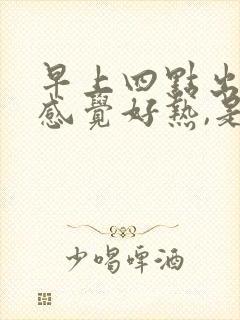 早上四點出
感覺好熱,是
少喝啤酒